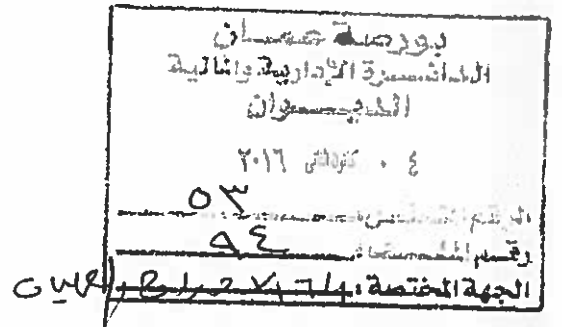 بورصة عمان
الدائرة الإدارية والمالية
الديوان
٠٤ كانون الثاني ٢٠١٦
الرقم المتسلسل: ٥٣
رقم الملف: ٩٤
الجهة المختصة: